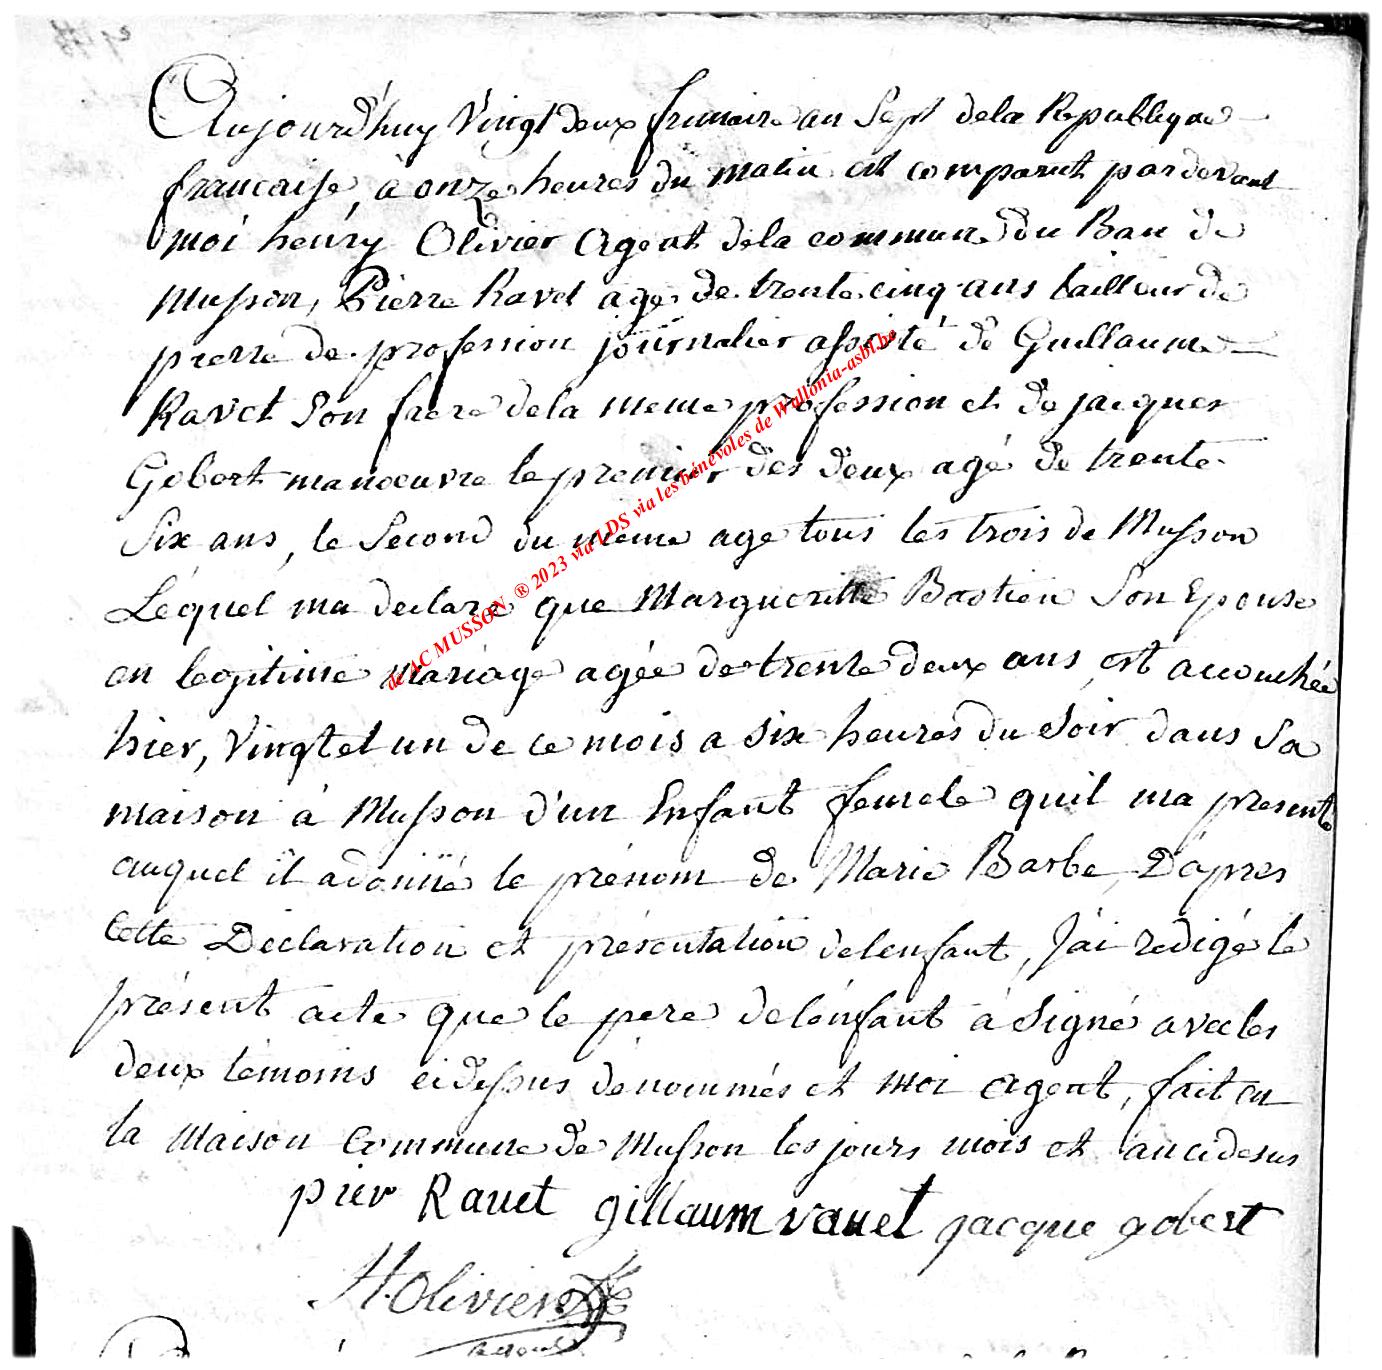 Aujourd'huy Vingt deux frimaire an Sept dela Republique
francaise, à onze heures du matin est comparut pardevant
moi henry Olivier Agent dela commune du Ban de
Musson, Pierre Ravet agé de trente cinq ans tailleur de
pierre de profession journalier assisté de Guillaume
Ravet Son frere dela meme profession et de jacques
Gobert manoeuvre le premier des deux agé de trente
Six ans, le Second du meme age tous les trois de Musson
Léquel ma declare que Margueritte Bastien Son Epouse
en legitime mariage agée de trente deux ans, est accouchée
hier, Vingt et un de ce mois a six heures du soir dans Sa
maison à Musson d'un Enfant femele quil ma presenté
auquel il adonné le prénom de Marie Barbe, D'apres
Cette Déclaration et présentation delenfant, J'ai redigé le
présent acte que le pere delénfant à signé avec les
deux témoins cidessus dénommés et moi agent, fait en
la Maison Commune de Musson les jours mois et an cidesus
pier Ravet gillaum ravet jacque gobert
H. Olivier
agent
de AC MUSSON ® 2023 via LDS via les bénévoles de Wallonia-asbl.be